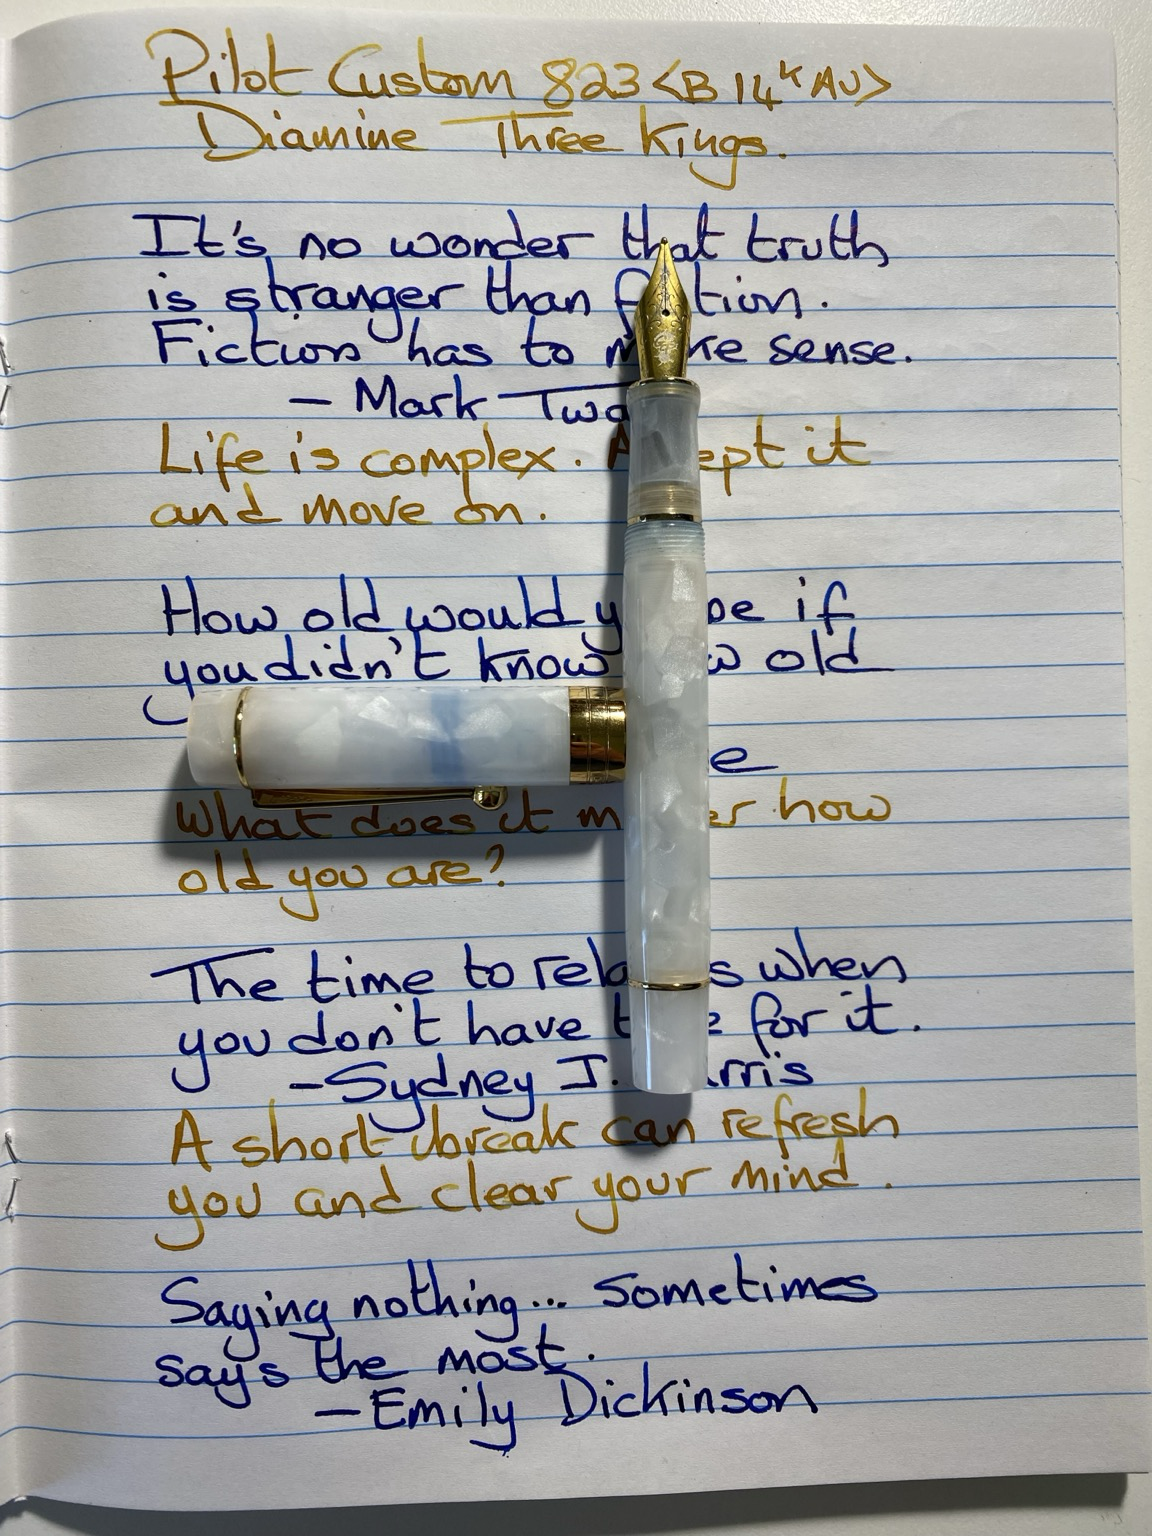 Pilot Custom 823 <B 14k AU>
Diamine Three Kings.
It's no wonder that truth
is stranger than fiction.
Fiction has to make sense.
- Mark Twa
Life is complex. Accept it
and move on.
How old would y be if
you didn't know how old
e
What does it matter how
old you are?
The time to relax is when
you don't have time for it.
- Sydney J. Harris
A short break can refresh
you and clear your mind.
Saying nothing... sometimes
says the most.
- Emily Dickinson